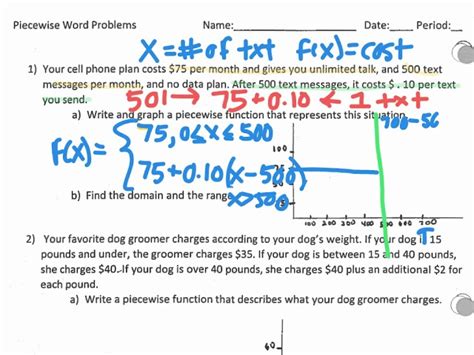 Piecewise Word Problems Name: Date: Period:
X = # of txt f(x) = cost
1) Your cell phone plan costs $75 per month and gives you unlimited talk, and 500 text
messages per month, and no data plan. After 500 text messages, it costs $ .10 per text
you send.
501 → 75+0.10 ← 1 txt
a) Write and graph a piecewise function that represents this situation.
700-50
F(x) = { 75, 0≤x≤500
75+0.10(x-500)
x>500
100
75
50
25
100 200 300 400 500 600 700
b) Find the domain and the range
T
2) Your favorite dog groomer charges according to your dog's weight. If your dog is 15
pounds and under, the groomer charges $35. If your dog is between 15 and 40 pounds,
she charges $40. If your dog is over 40 pounds, she charges $40 plus an additional $2 for
each pound.
a) Write a piecewise function that describes what your dog groomer charges.
60